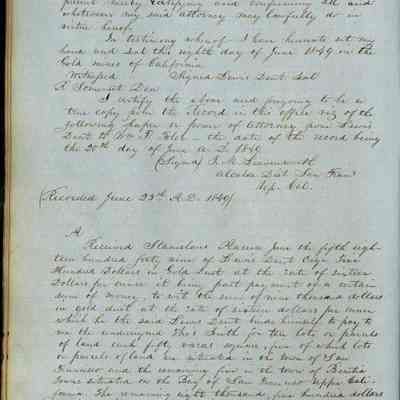 present hereby ratifying and confirming all and
whatsoever my said attorney may lawfully do in
virtue hereof
In testimony whereof I have hereunto set my
hand and seal this eighth day of June 1849 on the
Gold mines of California
Witnessed Signed Lewis Dent Seal
R. Somerset Den
I certify the above and foregoing to be a
true copy from the Record in this office viz of the
following paper or power of Attorney from Lewis
Dent to Wm F. the date of the record being
the 20th day of June A. D. 1849
(Signed) T. M. Leavenworth
Alcalde Dist San Fran
Up. Cal.
(Recorded June 23rd A.D. 1849)
A
Received Stanislaus River June the fifth eigh-
teen hundred forty nine of Lewis Dent Esqr. Five
Hundred Dollars in Gold Dust at the rate of sixteen
Dollars per ounce it being part payment of a certain
sum of money, to wit the sum of nine thousand dollars
in gold dust at the rate of sixteen dollars per ounce
which he the said Lewis Dent binds himself to pay to
me the undersigned Thos Smith for ten lots or parcels
of land each fifty varas square, five of which lots
or parcels of land are situated in the town of San
Francisco and the remaining five in the town of Benitia
town situated on the Bay of San Francisco Upper Cali-
fornia. The remaining eight thousand, five hundred